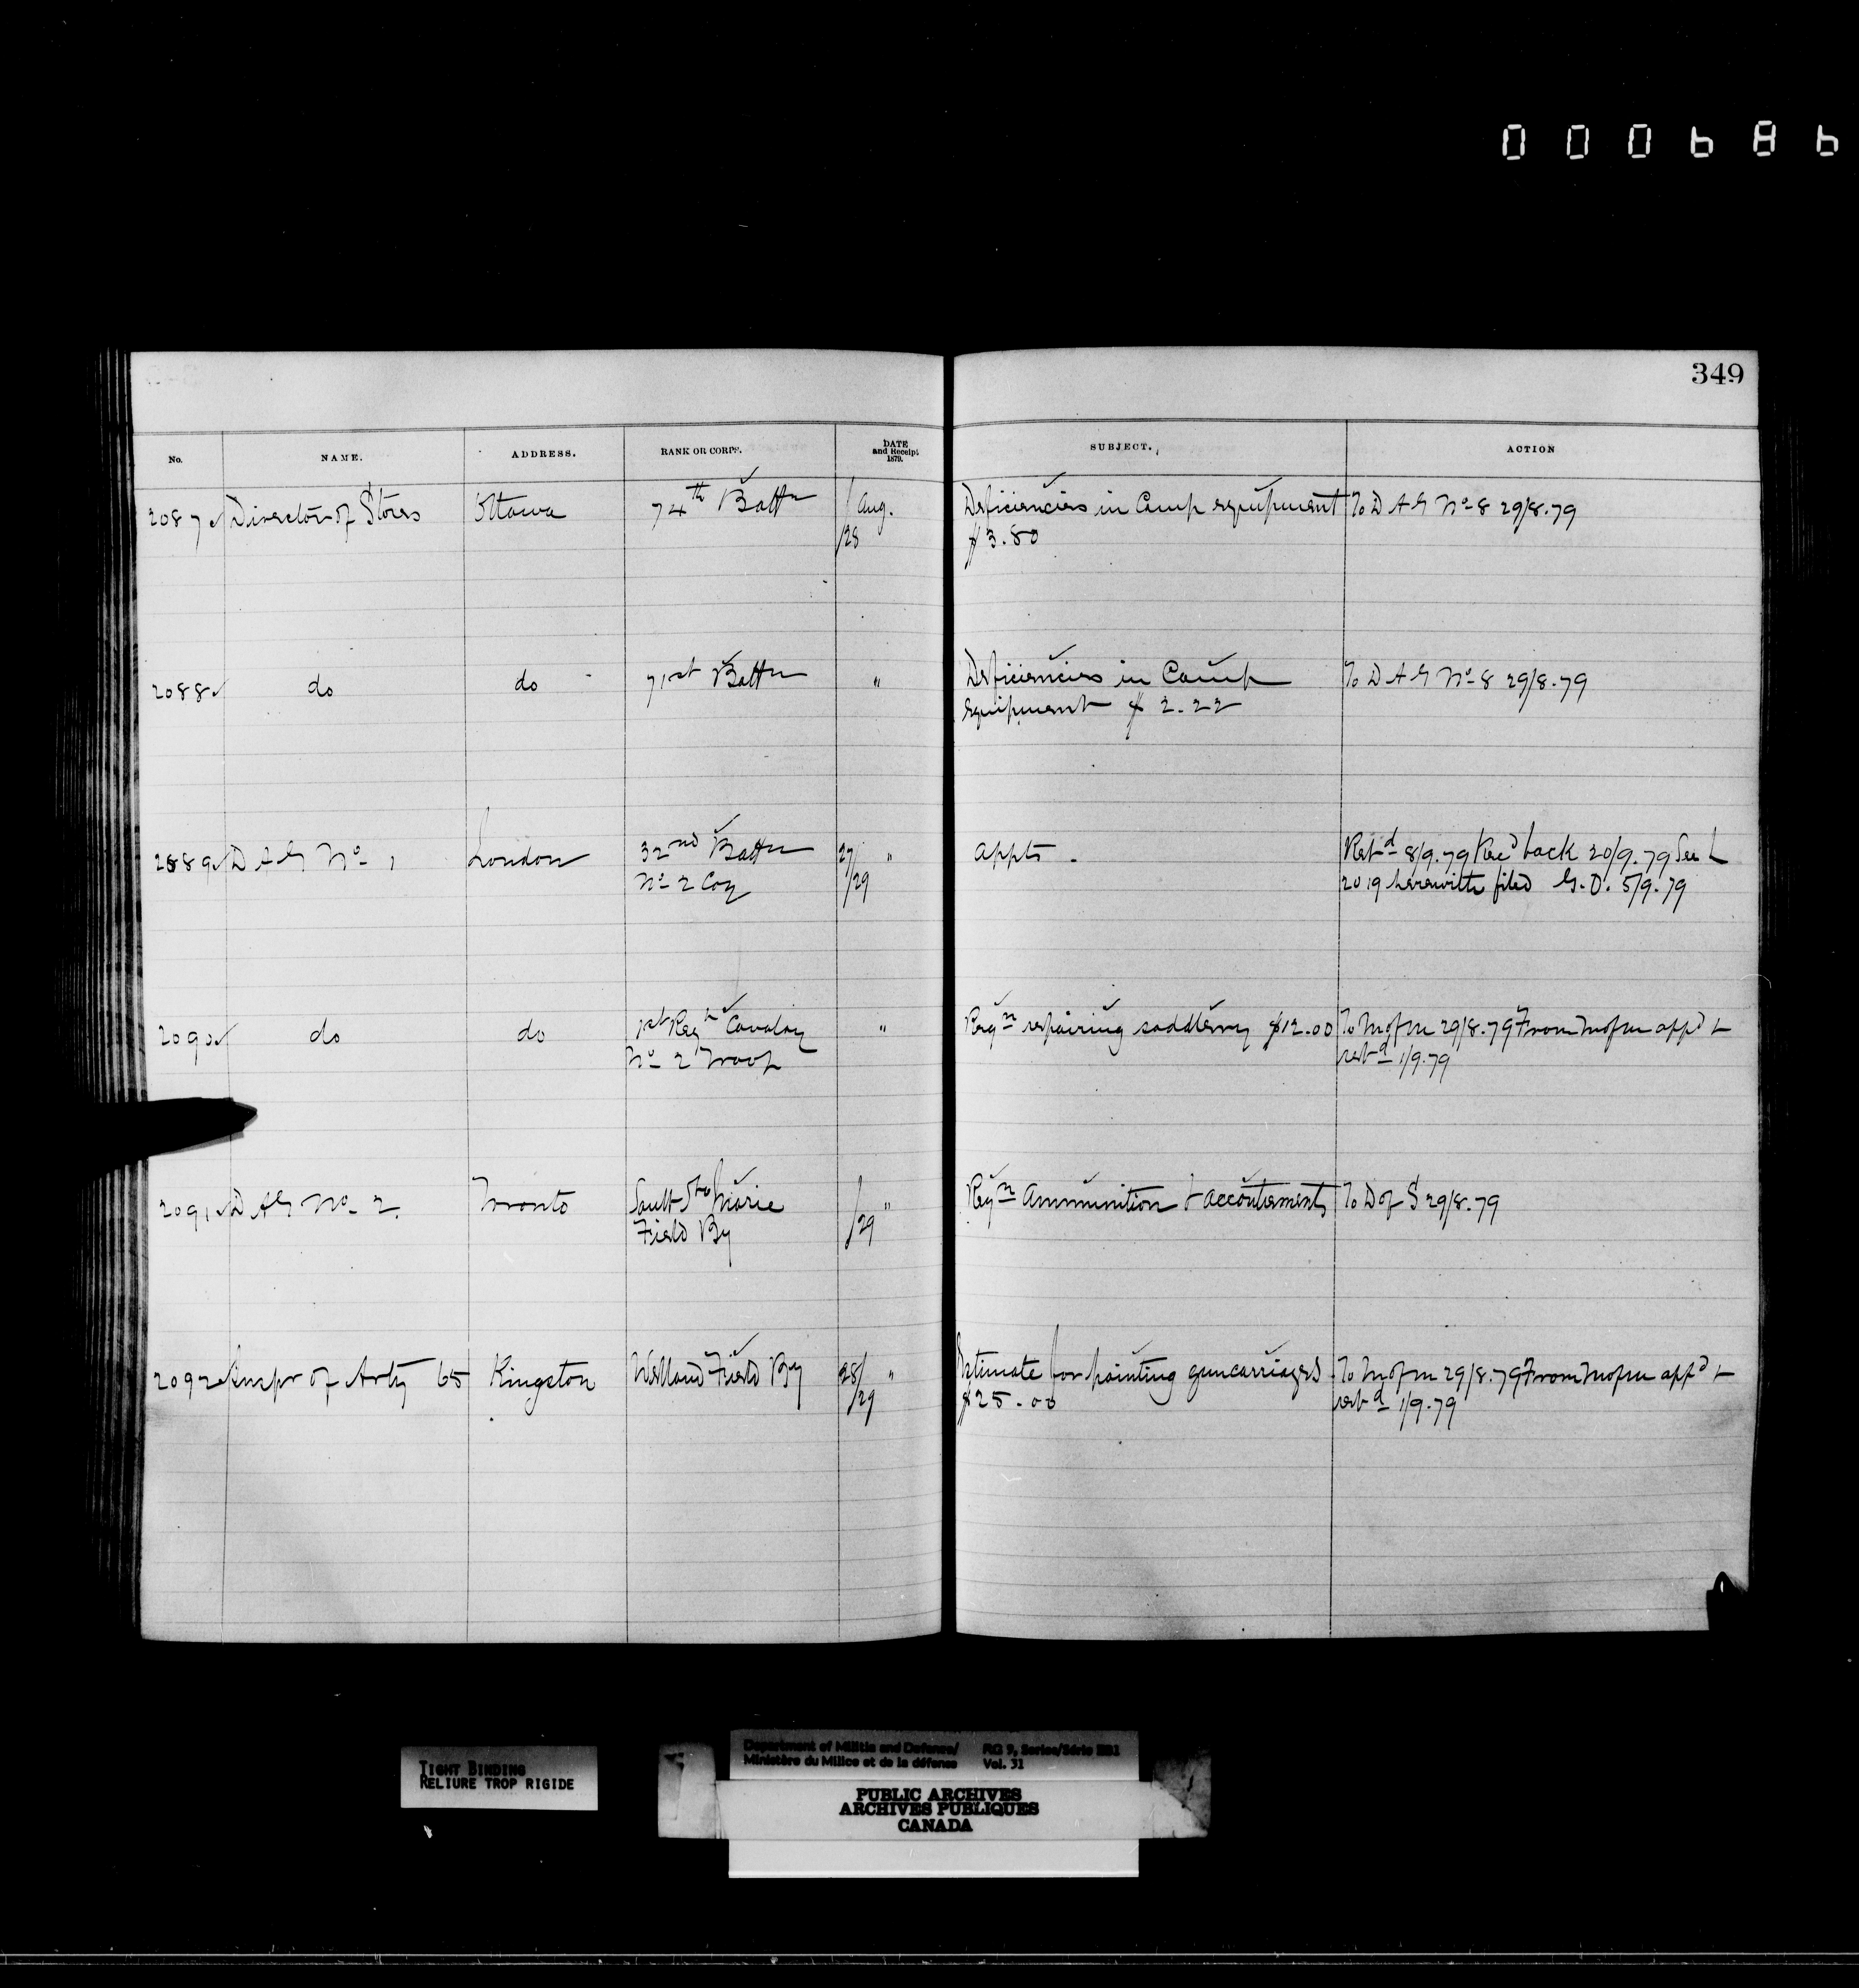 000686
349
No. NAME. ADDRESS. RANK OR CORPS. DATE and Receipt 1879. SUBJECT. ACTION
2087 Director of Stores Ottawa 74th Battn / Aug. Deficiencies in Camp equipment To D A G No 8 29/8.79
/28 $3.80
2088 do do 71st Battn " Deficiencies in Camp To D A G No 8 29/8.79
equipment $ 2.22
2089 D A G No 1 London 32nd Battn 27/ " appts. Retd 8/9.79 Recd back 20/9.79 See L
No 2 Coy /29 2019 herewith filed G.O. 5/9.79
2090 do do 1st Regt Cavalry " Reqn repairing saddlery $12.00 To M of M 29/8.79 From M of M appd &
No 2 Troop retd 1/9.79
2091 D A G No 2. Toronto Sault Ste Marie / " Reqn Ammunition & accouterments To D of S 29/8.79
Field By /29
2092 Inspr of Arty 65 Kingston Welland Field By 28/ " Estimate for painting guncarriages To M of M 29/8.79 From M of M appd &
/29 $25.00 retd 1/9.79
TIGHT BINDING
RELIURE TROP RIGIDE
Department of Militia and Defence/ RG 9, Series/Série IIB1
Ministère du Milice et de la défense Vol. 31
PUBLIC ARCHIVES
ARCHIVES PUBLIQUES
CANADA